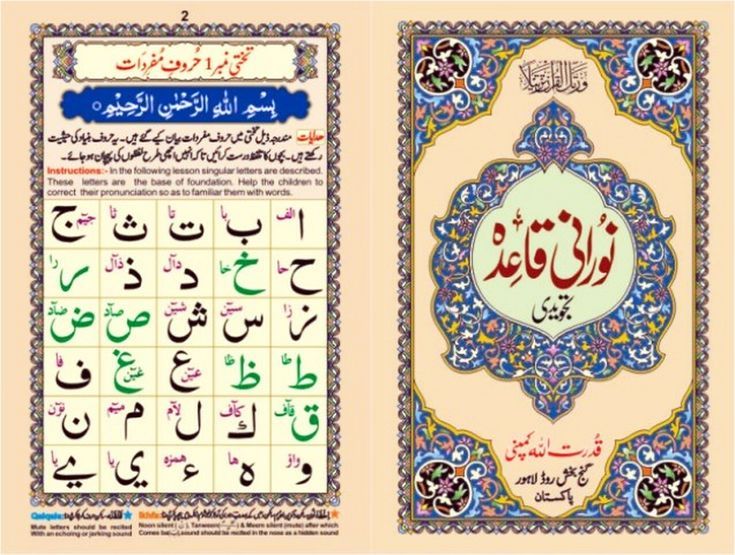 وَرَتِّلِ الْقُرْآنَ تَرْتِيلًا
نُورانی قاعِدہ
تجویدی
قدرت اللہ کمپنی
گنج بخش روڈ لاہور
پاکستان
2
تختی نمبر 1 حُروفِ مُفرِدَات
بِسْمِ اللهِ الرَّحْمٰنِ الرَّحِيْمِ
ھدایات مندرجہ ذیل تختی میں حروف مفردات بیان کیے گئے ہیں۔ یہ حروف بنیاد کی حیثیت
رکھتے ہیں۔ بچوں کا تلفظ درست کرائیں تاکہ انہیں اچھی طرح لفظوں کی پہچان ہو جائے۔
Instructions:- In the following lesson singular letters are described.
These letters are the base of foundation. Help the children to
correct their pronunciation so as to familiar them with words.
ا الف ب با ت تا ث ثا ج جیم
ح حا خ خا د دال ذ ذال ر را
ز زا س سین ش شین ص صاد ض ضاد
ط طا ظ ظا ع عین غ غین ف فا
ق قاف ك کاف ل لام م میم ن نون
و واؤ ه ها ء همزه ي یا ے یا
Qalqala:
Mute letters should be recited
With an echoing or jerking sound
Ikhfa:
Noon silent (نْ), Tanween & Meem silent (mute) after which
Comes ba sound should be recited in the nose as a hidden sound